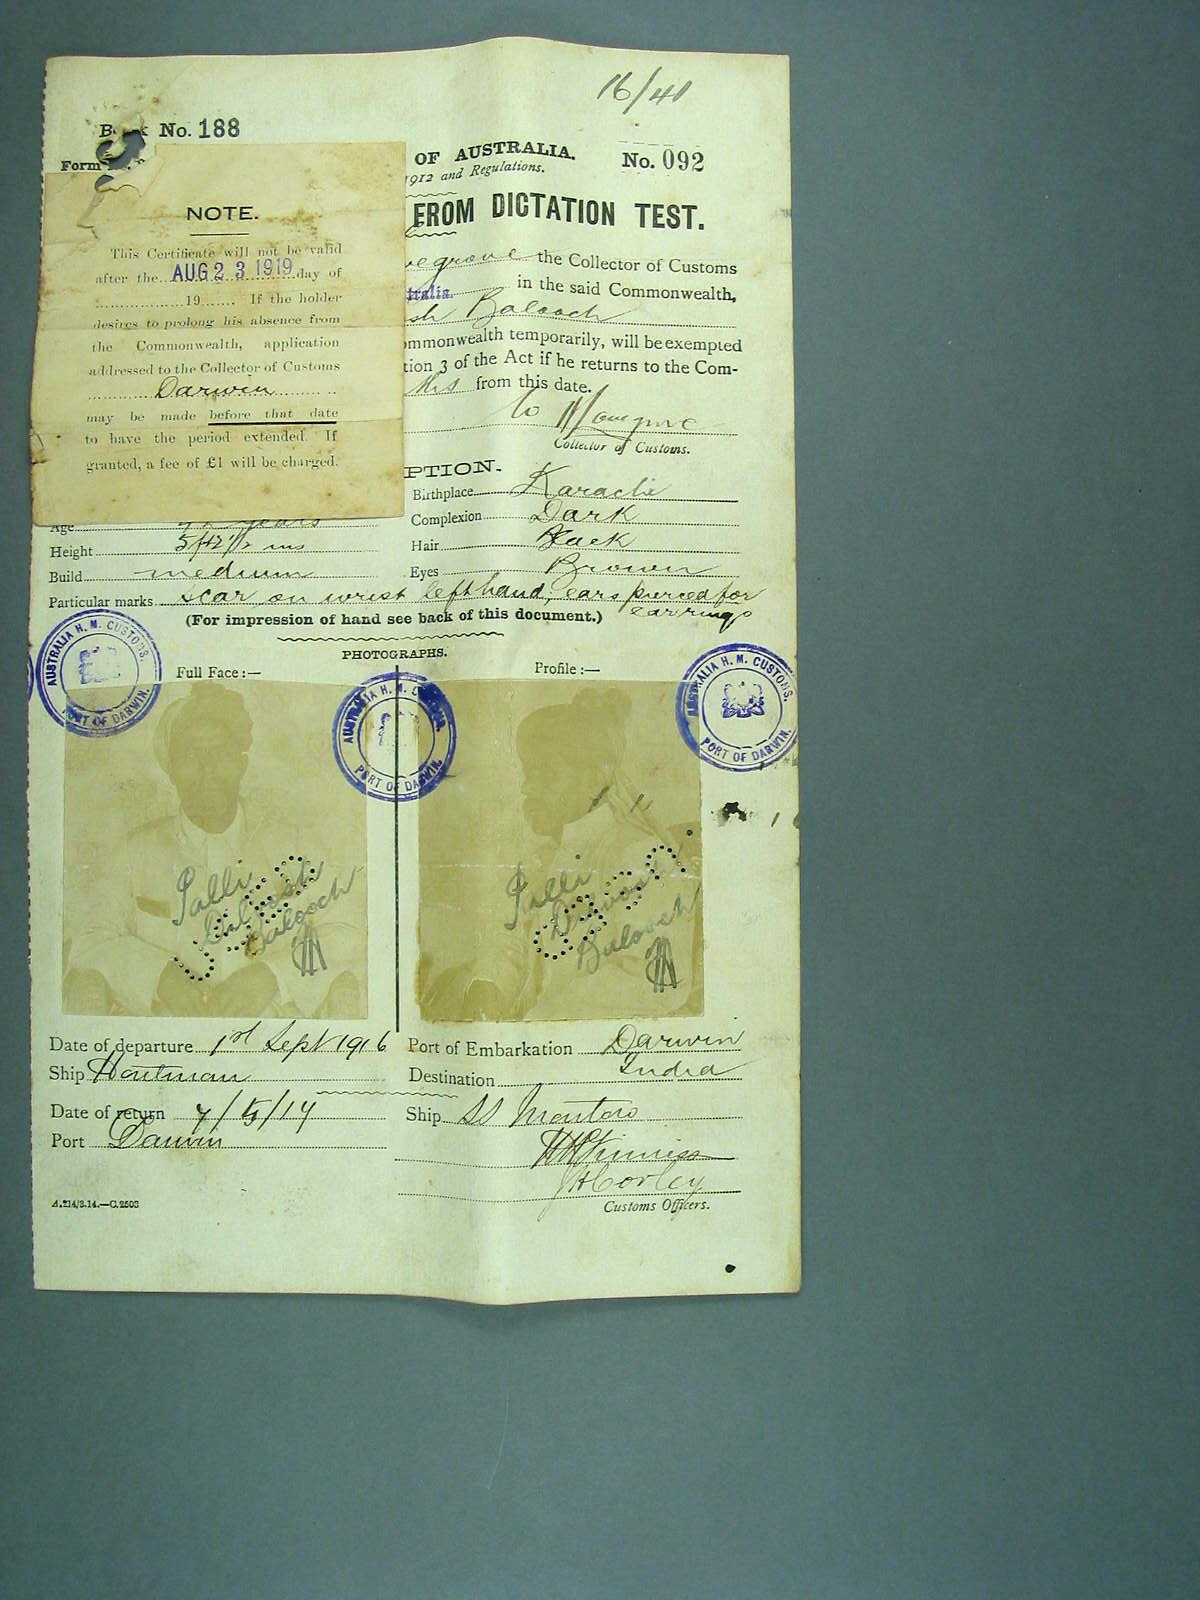 16/41
Book No. 188
Form
OF AUSTRALIA.
No. 092
1912 and Regulations.
FROM DICTATION TEST.
NOTE.
This Certificate will not be valid
after the AUG 23 1919 day of
19 If the holder
desires to prolong his absence from
the Commonwealth, application
addressed to the Collector of Customs
Darwin
may be made before that date
to have the period extended. If
granted, a fee of £1 will be charged.
the Collector of Customs
in the said Commonwealth,
Balooch
temporarily, will be exempted
3 of the Act if he returns to the Com-
from this date.
Collector of Customs.
PTION.
Birthplace Karachi
Age years
Complexion Dark
Height
Hair Black
Build medium
Eyes Brown
Particular marks scar on wrist left hand, ears pierced for
earrings
(For impression of hand see back of this document.)
PHOTOGRAPHS.
Full Face :—
Profile :—
AUSTRALIA H. M. CUSTOMS.
PORT OF DARWIN.
AUSTRALIA H. M. CUSTOMS.
PORT OF DARWIN.
AUSTRALIA H. M. CUSTOMS.
PORT OF DARWIN.
Palli
Balooch
Palli
Balooch
Date of departure 1st Sept 1916
Port of Embarkation Darwin
Ship Houtman
Destination India
Date of return
Ship SS Montoro
Port Darwin
Customs Officers.
A.214/3.14.—C.2503